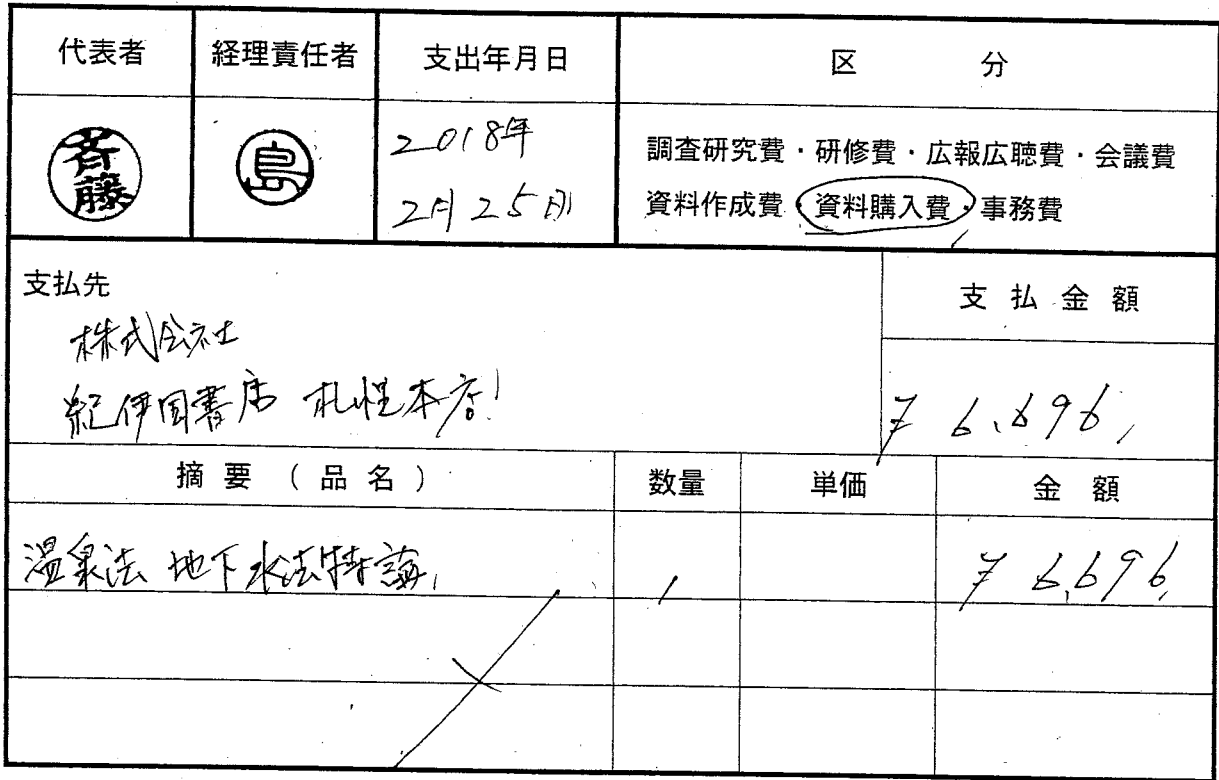 代表者 経理責任者 支出年月日 区 分
斉藤 島 2018年
2月25日
調査研究費・研修費・広報広聴費・会議費
資料作成費・資料購入費・事務費
支払先
株式会社
紀伊国書店 札幌本店
支 払 金 額
¥6,696,
摘 要 ( 品 名 ) 数量 単価 金 額
温泉法 地下水法特講, 1 ¥6,696,